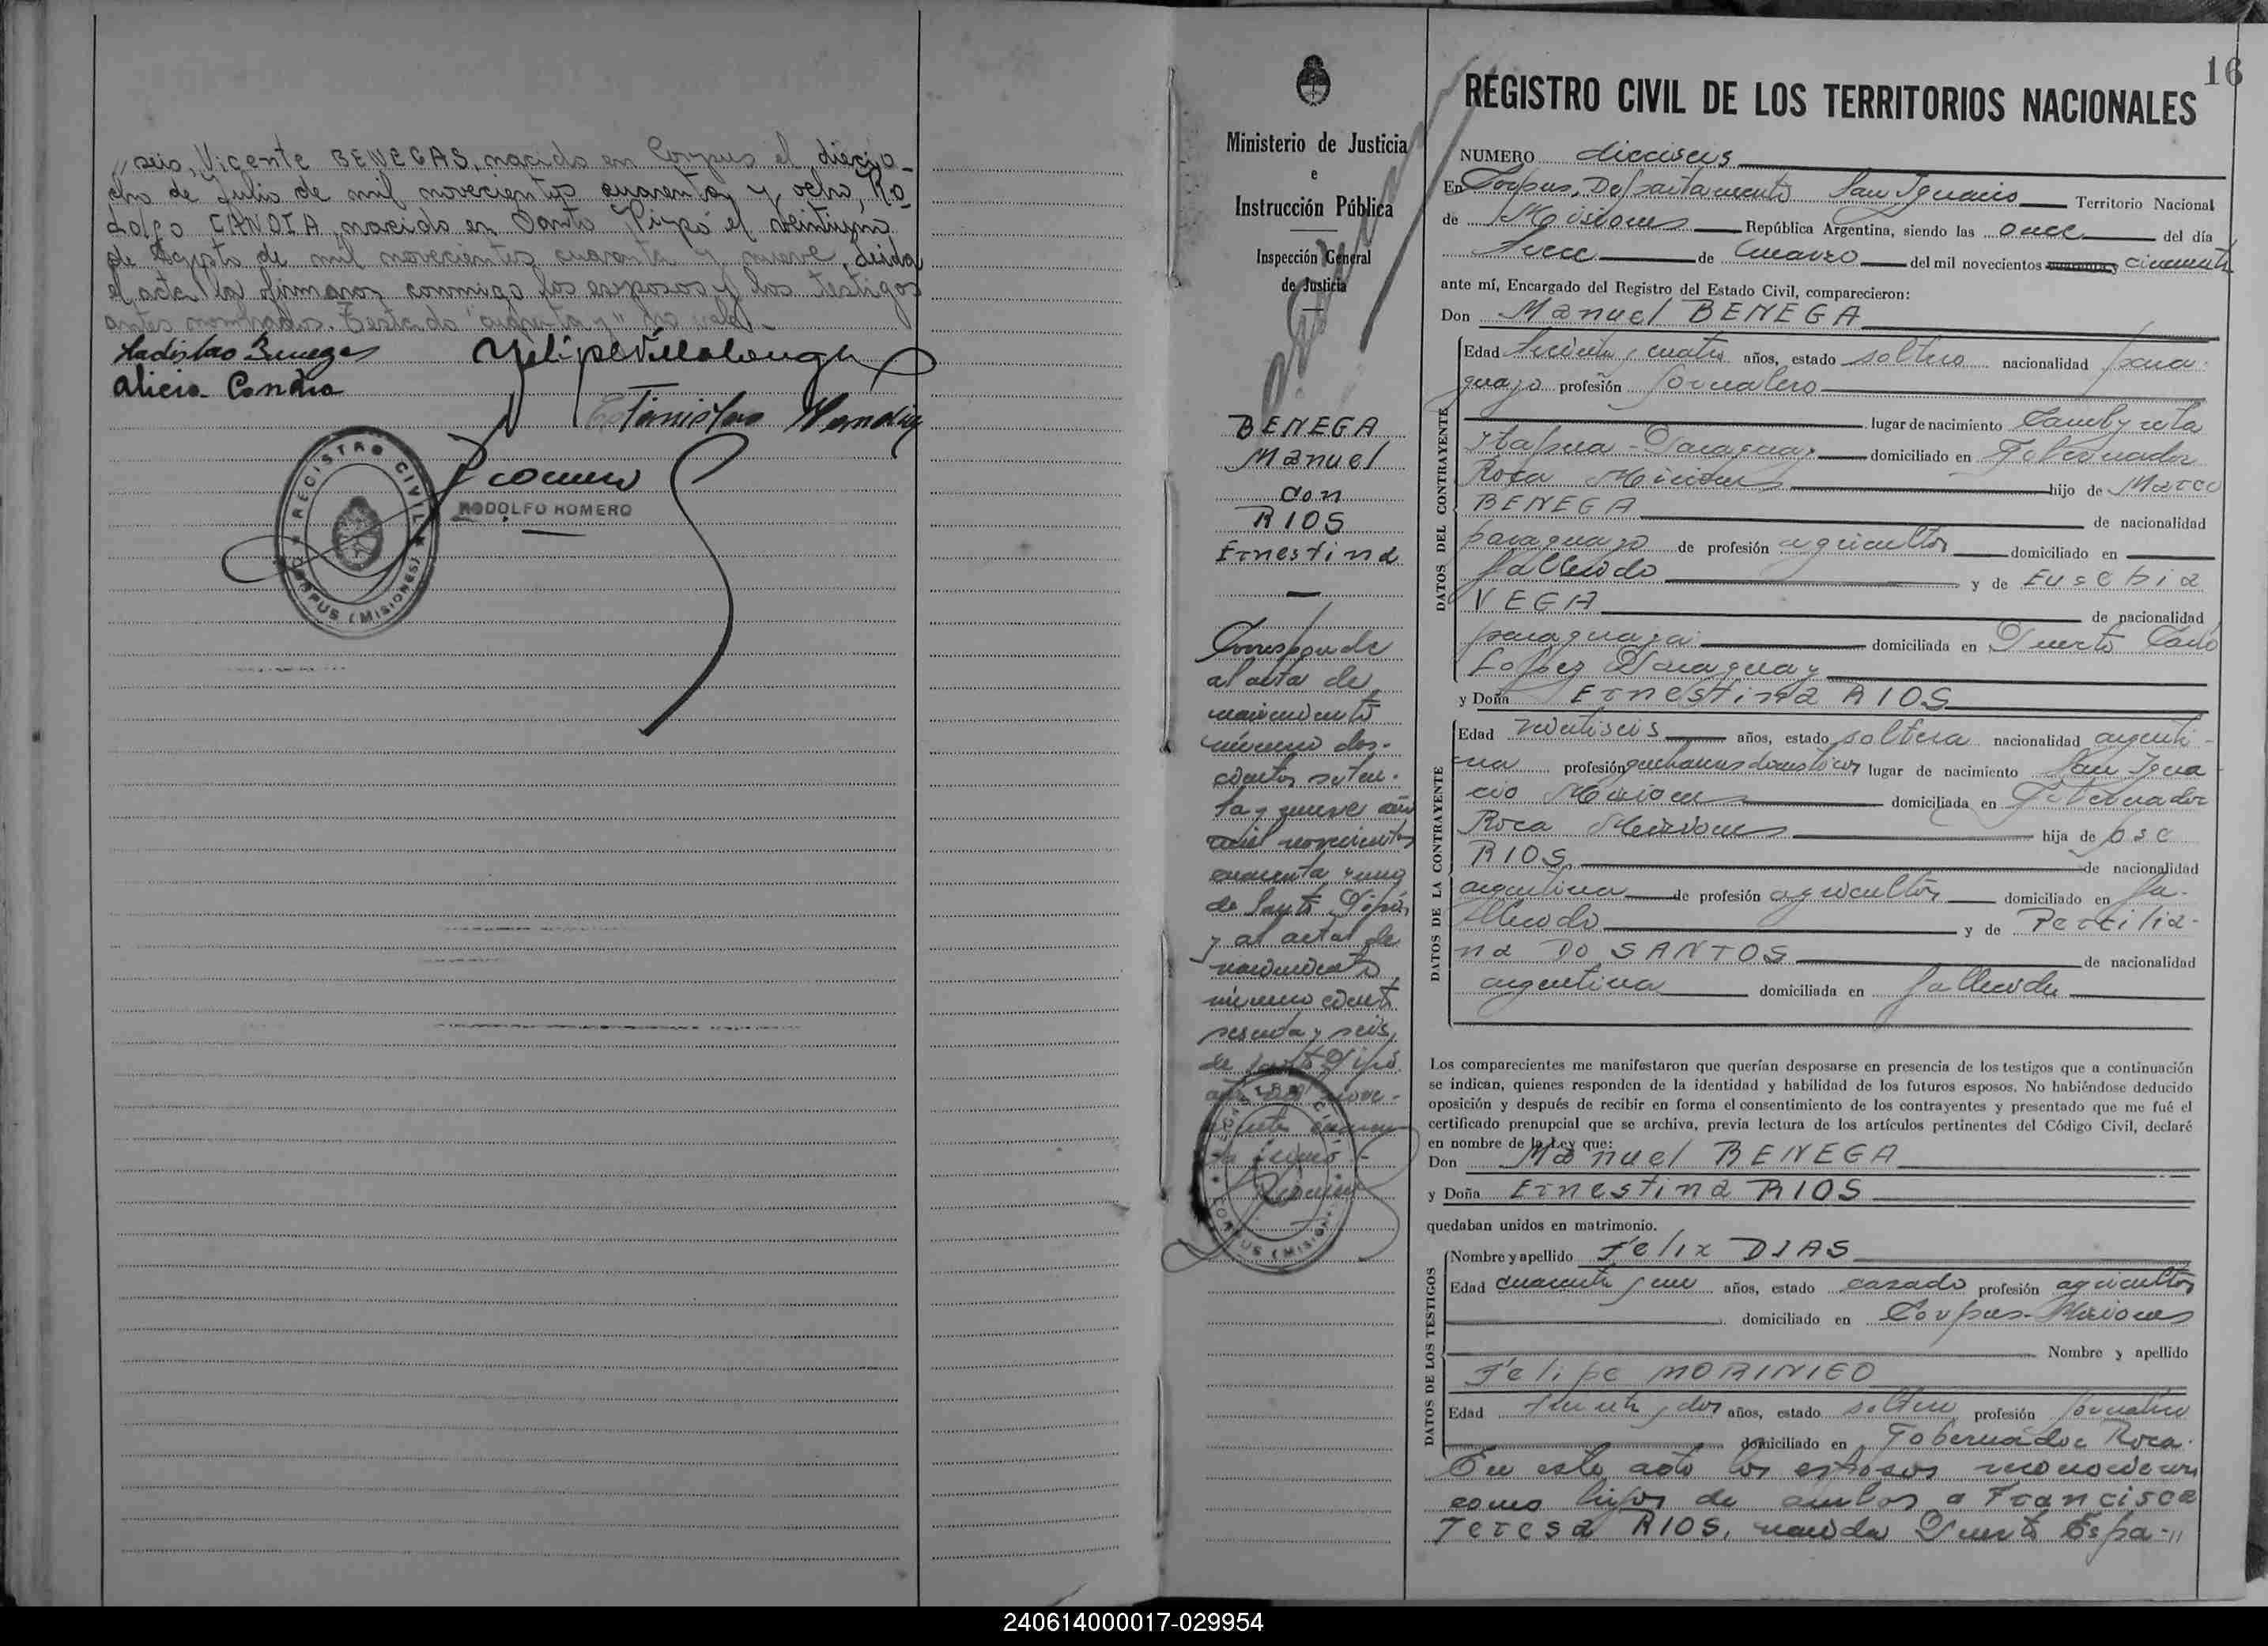 " seis, Vicente BENEGAS, nacido en Corpus el diecio-
cho de Julio de mil novecientos cuarenta y ocho, Ro-
dolfo CANDIA, nacido en Santo Pipó el veintiuno
de Agosto de mil novecientos cuarenta y nueve. Leida
el acta la firmaron conmigo los esposos y los testigos
antes nombrados. Testado "cuarenta y" no vale.-
Ladislao Benegas
Felipe Villalonga
Alicia Candia
Estanislao
REGISTRO CIVIL
CORPUS (MISIONES)
RODOLFO ROMERO
Ministerio de Justicia
e
Instrucción Pública
Inspección General
de Justicia
BENEGA
Manuel
con
RIOS
Ernestina
Corresponde
al acta de
nacimiento
número dos-
cientos seten-
ta y nueve año
mil novecientos
cuarenta y uno
de Santo Pipó,
y al acta de
nacimiento
número ciento
sesenta y seis,
de Santo Pipó
16
REGISTRO CIVIL DE LOS TERRITORIOS NACIONALES
NUMERO dieciseis
En Corpus, Departamento San Ignacio Territorio Nacional
de Misiones República Argentina, siendo las once del día
trece de marzo del mil novecientos cincuenta
ante mí, Encargado del Registro del Estado Civil, comparecieron:
Don Manuel BENEGA
DATOS DEL CONTRAYENTE
Edad treinta y cuatro años, estado soltero nacionalidad para-
guayo profesión jornalero
lugar de nacimiento
Itapua - Paraguay domiciliado en Gobernador
Roca Misiones hijo de Marco
BENEGA de nacionalidad
paraguayo de profesión agricultor domiciliado en
fallecido y de Eusebia
VEGA de nacionalidad
paraguaya domiciliada en Puerto
Lopez Paraguay
y Doña Ernestina RIOS
DATOS DE LA CONTRAYENTE
Edad veintiseis años, estado soltera nacionalidad argenti-
na profesión quehaceres domésticos lugar de nacimiento San Igna
cio Misiones domiciliada en Gobernador
Roca Misiones hija de José
RIOS de nacionalidad
argentina de profesión agricultor domiciliado en fa-
llecido y de Percilia-
na DO SANTOS de nacionalidad
argentina domiciliada en fallecida
Los comparecientes me manifestaron que querían desposarse en presencia de los testigos que a continuación
se indican, quienes responden de la identidad y habilidad de los futuros esposos. No habiéndose deducido
oposición y después de recibir en forma el consentimiento de los contrayentes y presentado que me fué el
certificado prenupcial que se archiva, previa lectura de los artículos pertinentes del Código Civil, declaré
en nombre de la Ley que:
Don Manuel BENEGA
y Doña Ernestina RIOS
quedaban unidos en matrimonio.
DATOS DE LOS TESTIGOS
Nombre y apellido Felix DIAS
Edad cuarenta y un años, estado casado profesión agricultor
domiciliado en Corpus - Misiones
Nombre y apellido
Felipe MORINIEO
Edad treinta y dos años, estado soltero profesión jornalero
domiciliado en Gobernador Roca.
En este acto los esposos reconocieron
como hijos de ambos a Francisca
Teresa RIOS, nacida Puerto Espa-"
240614000017-029954